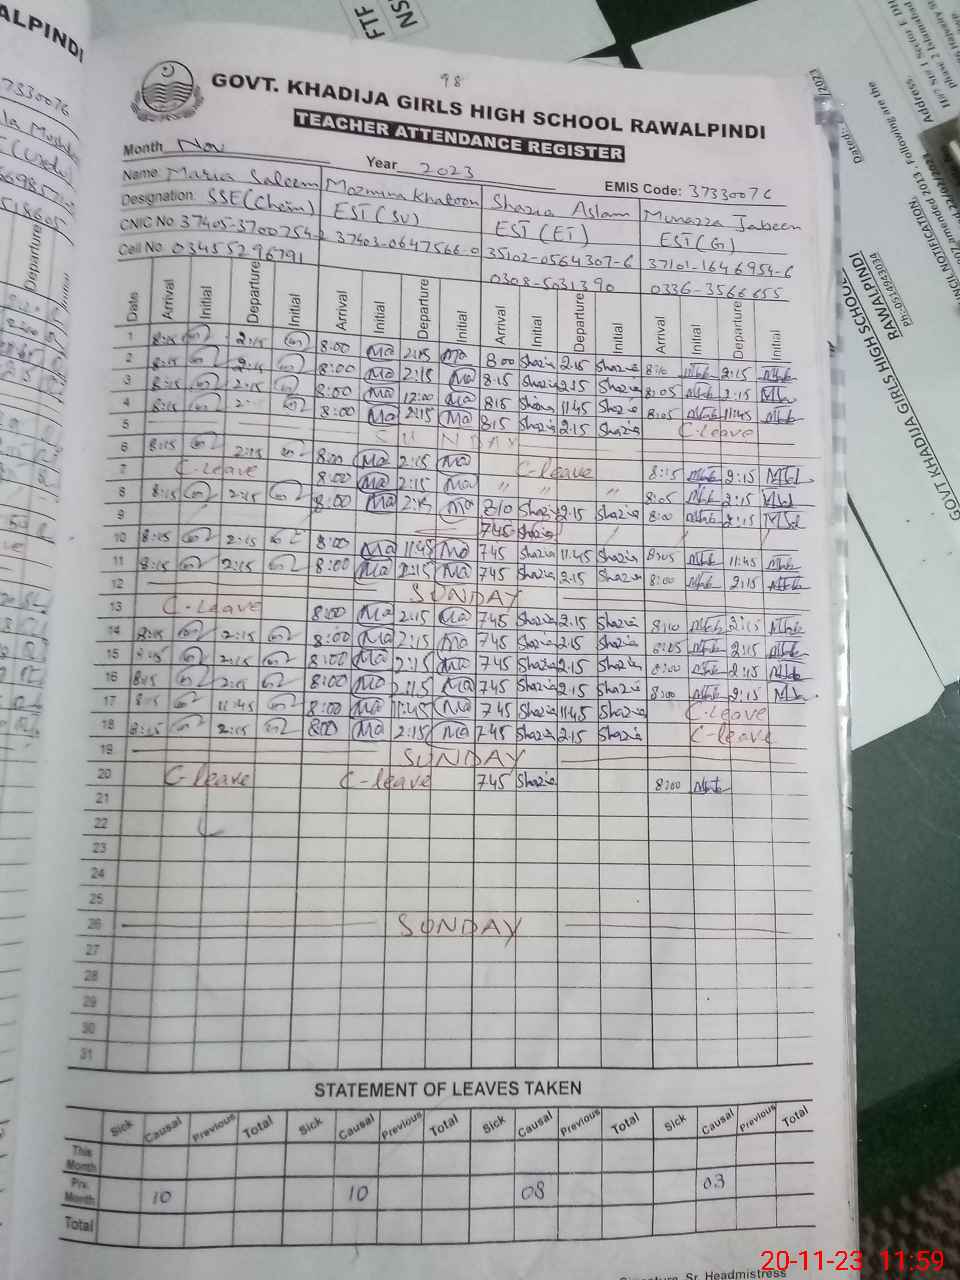 98
GOVT. KHADIJA GIRLS HIGH SCHOOL RAWALPINDI
TEACHER ATTENDANCE REGISTER
Month Nov Year 2023 EMIS Code: 37330076
Name: Maria Saleem Mozmina Khatoon Shazia Aslam Munazza Jabeen
Designation: SSE(Chem) EST(SV) EST(ET) EST(G)
CNIC No. 37405-3700754-2 37403-0647566-0 35102-0564307-6 37101-1646954-6
Cell No. 03455296791 0308-5031390 0336-3566655
Date Arrival Initial Departure Initial Arrival Initial Departure Initial Arrival Initial Departure Initial Arrival Initial Departure Initial
1 8:15 2:15 8:00 Ma 2:15 Ma 8 00 Shazia 2.15 Shazia 8:10 2:15
2 8:15 2:15 8:00 Ma 2:15 Ma 8.15 Shazia 2.15 Shazia 8:05 2:15
3 8:15 2:15 8:00 Ma 12:00 Ma 8:15 Shazia 11:45 Shazia 8:05 11:45
4 8:15 8:00 Ma 2:15 Ma 8:15 Shazia 2.15 Shazia C-leave
5 SUNDAY
6 8:15 2:15 8:00 Ma 2:15 Ma C-leave 8:15 2:15
7 C-leave 8:00 Ma 2:15 Ma " " " 8:05 2:15
8 8:15 2:15 8:00 Ma 2:15 Ma 8 10 Shazia 2.15 Shazia 8:00 2:15
9 7.45 Shazia
10 8:15 2:15 8:00 Ma 11:45 Ma 7 45 Shazia 11.45 Shazia 8:05 11:45
11 8:15 2:15 8:00 Ma 2:15 Ma 7 45 Shazia 2.15 Shazia 8:00 2:15
12 SUNDAY
13 C-Leave 8:00 Ma 2:15 Ma 7 45 Shazia 2.15 Shazia 8:10 2:15
14 8:15 2:15 8:00 Ma 2:15 Ma 7 45 Shazia 2.15 Shazia 8:05 2:15
15 8:15 2:15 8:00 Ma 2:15 Ma 7 45 Shazia 2.15 Shazia 8:00 2:15
16 8:15 2:15 8:00 Ma 2:15 Ma 7 45 Shazia 2.15 Shazia 8:00 2:15
17 8:15 11:45 8:00 Ma 11:45 Ma 7 45 Shazia 11.45 Shazia C-Leave
18 8:15 2:15 8:00 Ma 2:15 Ma 7.45 Shazia 2.15 Shazia C-leave
19 SUNDAY
20 C-leave C-leave 7 45 Shazia 8:00
21
22
23
24
25
26 SUNDAY
27
28
29
30
31
STATEMENT OF LEAVES TAKEN
Sick Causal Previous Total Sick Causal Previous Total Sick Causal Previous Total Sick Causal Previous Total
This Month
Prv. Month 10 10 08 03
Total
Sr. Headmistress
20-11-23 11:59
ALPINDI
37330076
Departure
FTF
NS
Dated:
GOVT KHADIJA GIRLS HIGH SCHOOL
RAWALPINDI
Ph:0514943034
Following are the
Address.